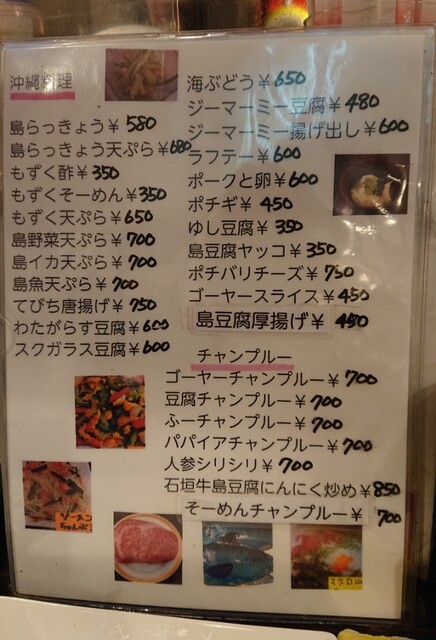 沖縄料理
島らっきょう¥580
島らっきょう天ぷら¥680
もずく酢¥350
もずくそーめん¥350
もずく天ぷら¥650
島野菜天ぷら¥700
島イカ天ぷら¥700
島魚天ぷら¥700
てびち唐揚げ¥750
わたがらす豆腐¥600
スクガラス豆腐¥600
海ぶどう¥650
ジーマーミー豆腐¥480
ジーマーミー揚げ出し¥600
ラフテー¥600
ポークと卵¥600
ポチギ¥450
ゆし豆腐¥350
島豆腐ヤッコ¥350
ポチバリチーズ¥750
ゴーヤースライス¥450
島豆腐厚揚げ¥450
チャンプルー
ゴーヤーチャンプルー¥700
豆腐チャンプルー¥700
ふーチャンプルー¥700
パパイアチャンプルー¥700
人参シリシリ¥700
石垣牛島豆腐にんにく炒め¥850
そーめんチャンプルー¥700
ソーメン
ちゃんぷる
マグロ山